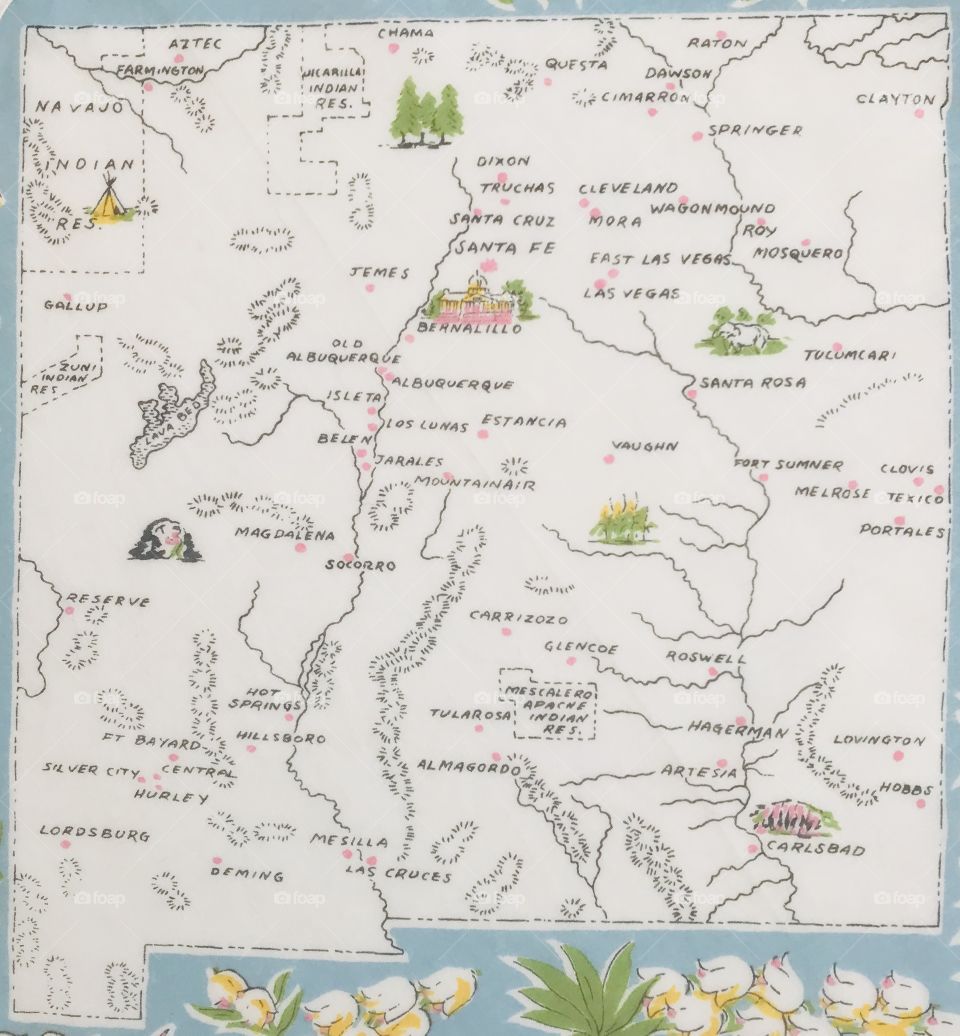 CHAMA
AZTEC
RATON
FARMINGTON
JICARILLA
INDIAN
RES.
QUESTA
DAWSON
CIMARRON
CLAYTON
NAVAJO
INDIAN
RES.
SPRINGER
DIXON
TRUCHAS
CLEVELAND
SANTA CRUZ
MORA
WAGONMOUND
ROY
MOSQUERO
SANTA FE
EAST LAS VEGAS
JEMES
LAS VEGAS
GALLUP
BERNALILLO
OLD
ALBUQUERQUE
TUCUMCARI
ZUNI
INDIAN
RES
ALBUQUERQUE
SANTA ROSA
ISLETA
LAVA BED
LOS LUNAS
ESTANCIA
BELEN
VAUGHN
JARALES
FORT SUMNER
CLOVIS
MOUNTAINAIR
MELROSE
TEXICO
MAGDALENA
PORTALES
SOCORRO
RESERVE
CARRIZOZO
GLENCOE
ROSWELL
MESCALERO
APACHE
INDIAN
RES.
HOT
SPRINGS
TULAROSA
HAGERMAN
FT BAYARD
HILLSBORO
LOVINGTON
SILVER CITY
CENTRAL
ALMAGORDO
ARTESIA
HURLEY
HOBBS
LORDSBURG
MESILLA
CARLSBAD
DEMING
LAS CRUCES
foap